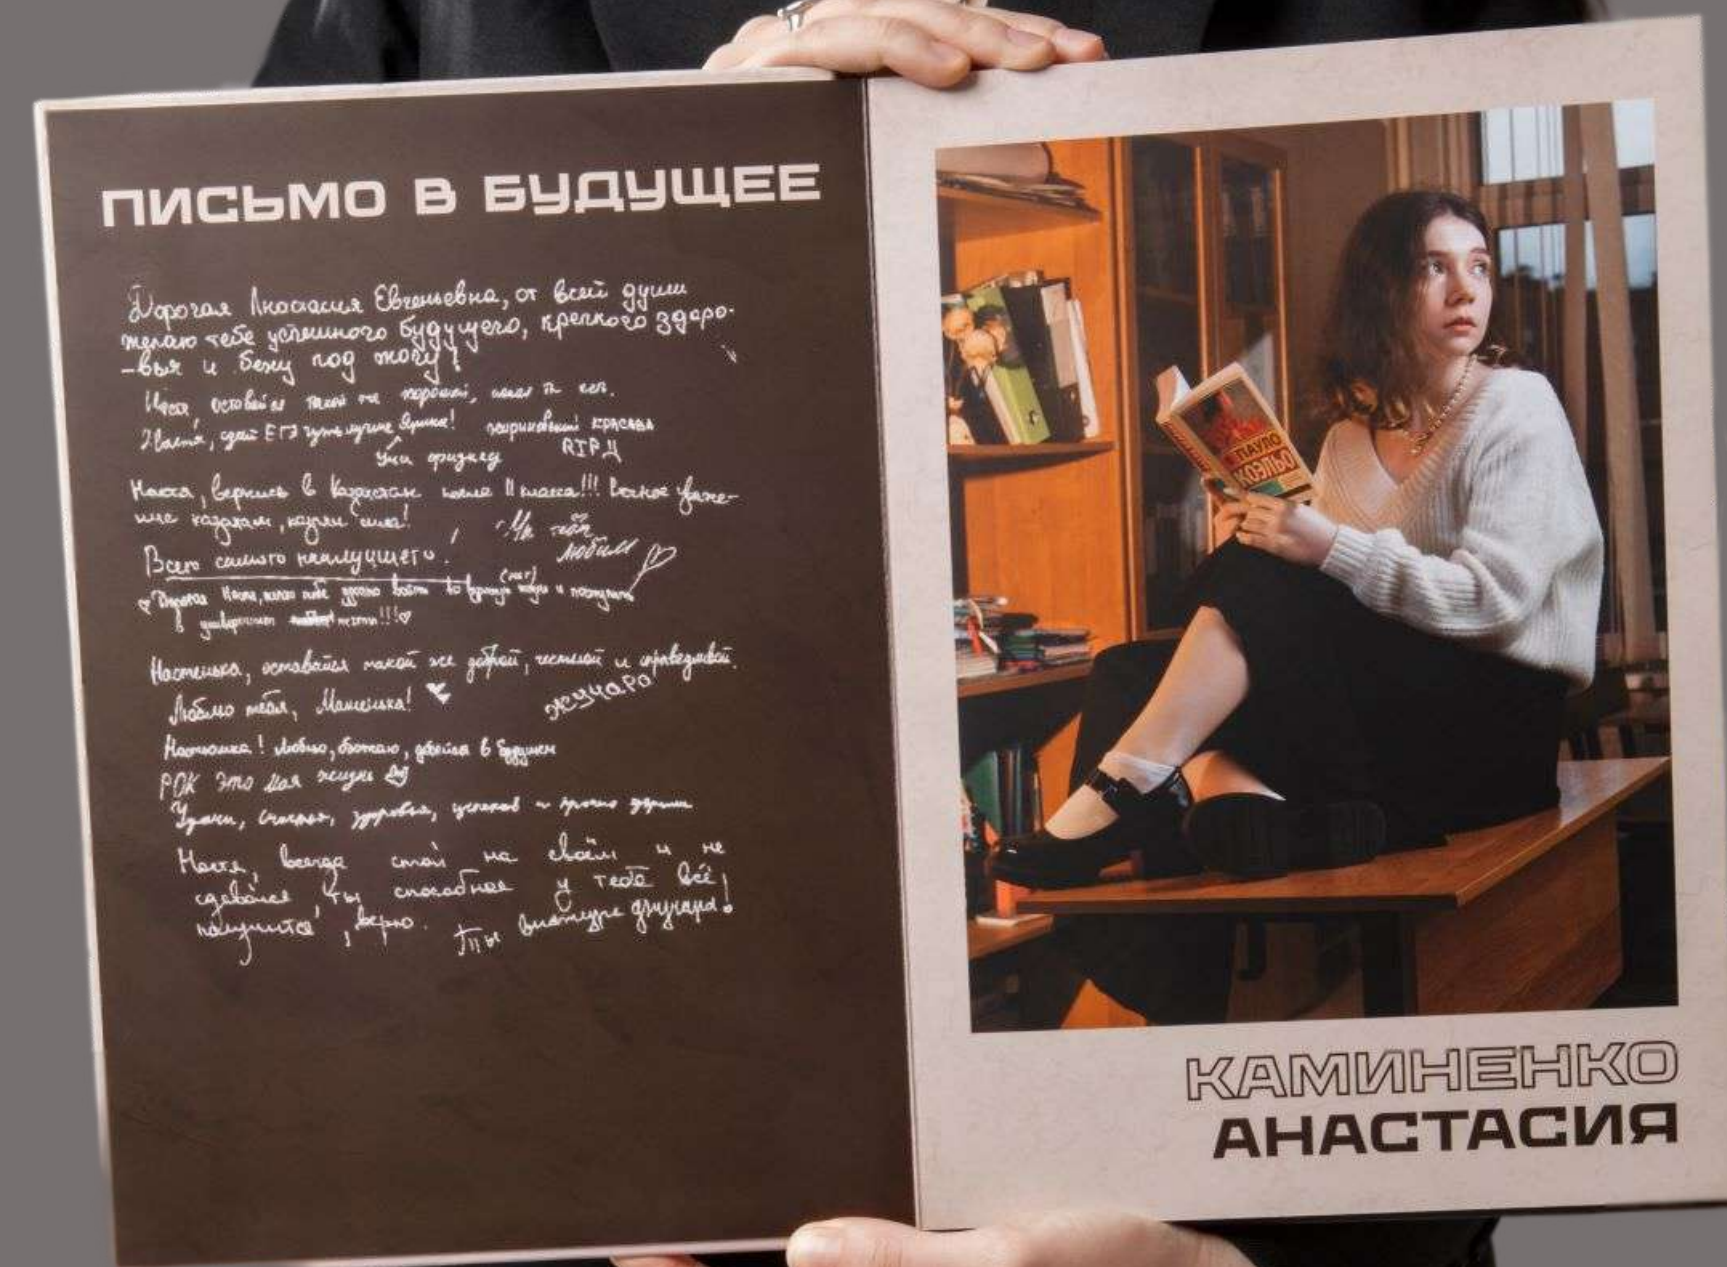 ПИСЬМО В БУДУЩЕЕ
Дорогая Анастасия Евгеньевна, от всей души
желаю тебе успешного будущего, крепкого здоро-
-вья и бежу под могу!
Настя, оставайся такой же хорошей, какая ты есть.
Настя, сдай ЕГЭ чуть лучше Ярика! жириновский красава
Учи физмед RIP Д
Настя, вернись в Казахстан после 11 класса!!! Вечное уваже-
ние казахам, казахи сила!
Мы тебя
любим
Всего самого наилучшего!
(нет)
Дорогая Настя, желаю тебе удачно войти во взрослую жизнь и поступить
в университет мечты!!!
Настенька, оставайся такой же доброй, честной и справедливой.
Люблю тебя, Манечка!
жучара
Настюшка! Люблю, обожаю, в будущем
РОК это моя жизнь
Удачи, счастья, здоровья, успехов и
Настя, всегда стой на своём и не
сдавайся, ты способная у тебя всё
получится, верю.
Ты джучара!
ПАУЛО
КОЭЛЬО
КАМИНЕНКО
АНАСТАСИЯ